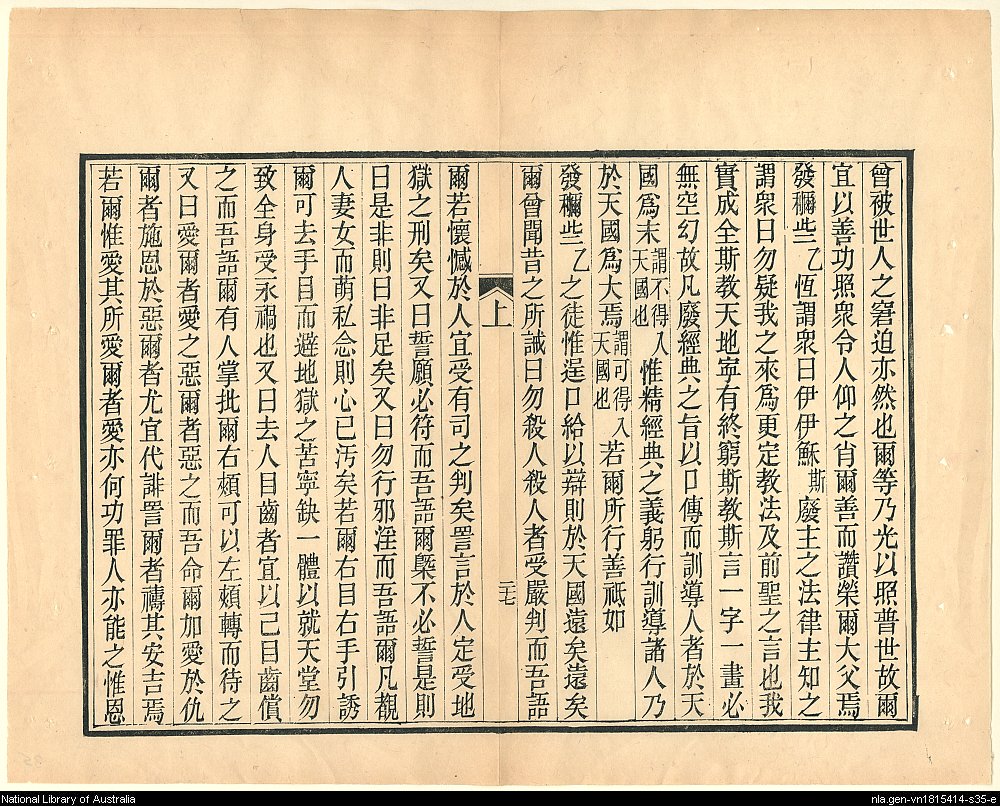 曾被世人之窘迫亦然也爾等乃光以照普世故爾
宜以善功照衆令人仰之肖爾善而讚榮爾大父焉
發穪些乙恆謂衆曰伊伊穌斯廢主之法律主知之
謂衆曰勿疑我之來爲更定教法及前聖之言也我
實成全斯教天地寧有終窮斯教斯言一字一畫必
無空幻故凡廢經典之旨以口傳而訓導人者於天
國爲末謂不得入天國也惟精經典之義躬行訓導諸人乃
於天國爲大焉謂可得入天國也若爾所行善祗如
發穪些乙之徒惟逞口給以辯則於天國遠矣遠矣
爾曾聞昔之所誡曰勿殺人殺人者受嚴判而吾語
上
二七
爾若懷憾於人宜受有司之判矣詈言於人定受地
獄之刑矣又曰誓願必符而吾語爾槩不必誓是則
曰是非則曰非足矣又曰勿行邪淫而吾語爾凡覩
人妻女而萌私念則心已汚矣若爾右目右手引誘
爾可去手目而避地獄之苦寧缺一體以就天堂勿
致全身受永禍也又曰去人目齒者宜以己目齒償
之而吾語爾有人掌批爾右頰可以左頰轉而待之
又曰愛爾者愛之惡爾者惡之而吾命爾加愛於仇
爾者施恩於惡爾者尤宜代誹詈爾者禱其安吉焉
若爾惟愛其所愛爾者愛亦何功罪人亦能之惟恩
National Library of Australia
nla.gen-vn1815414-s35-e